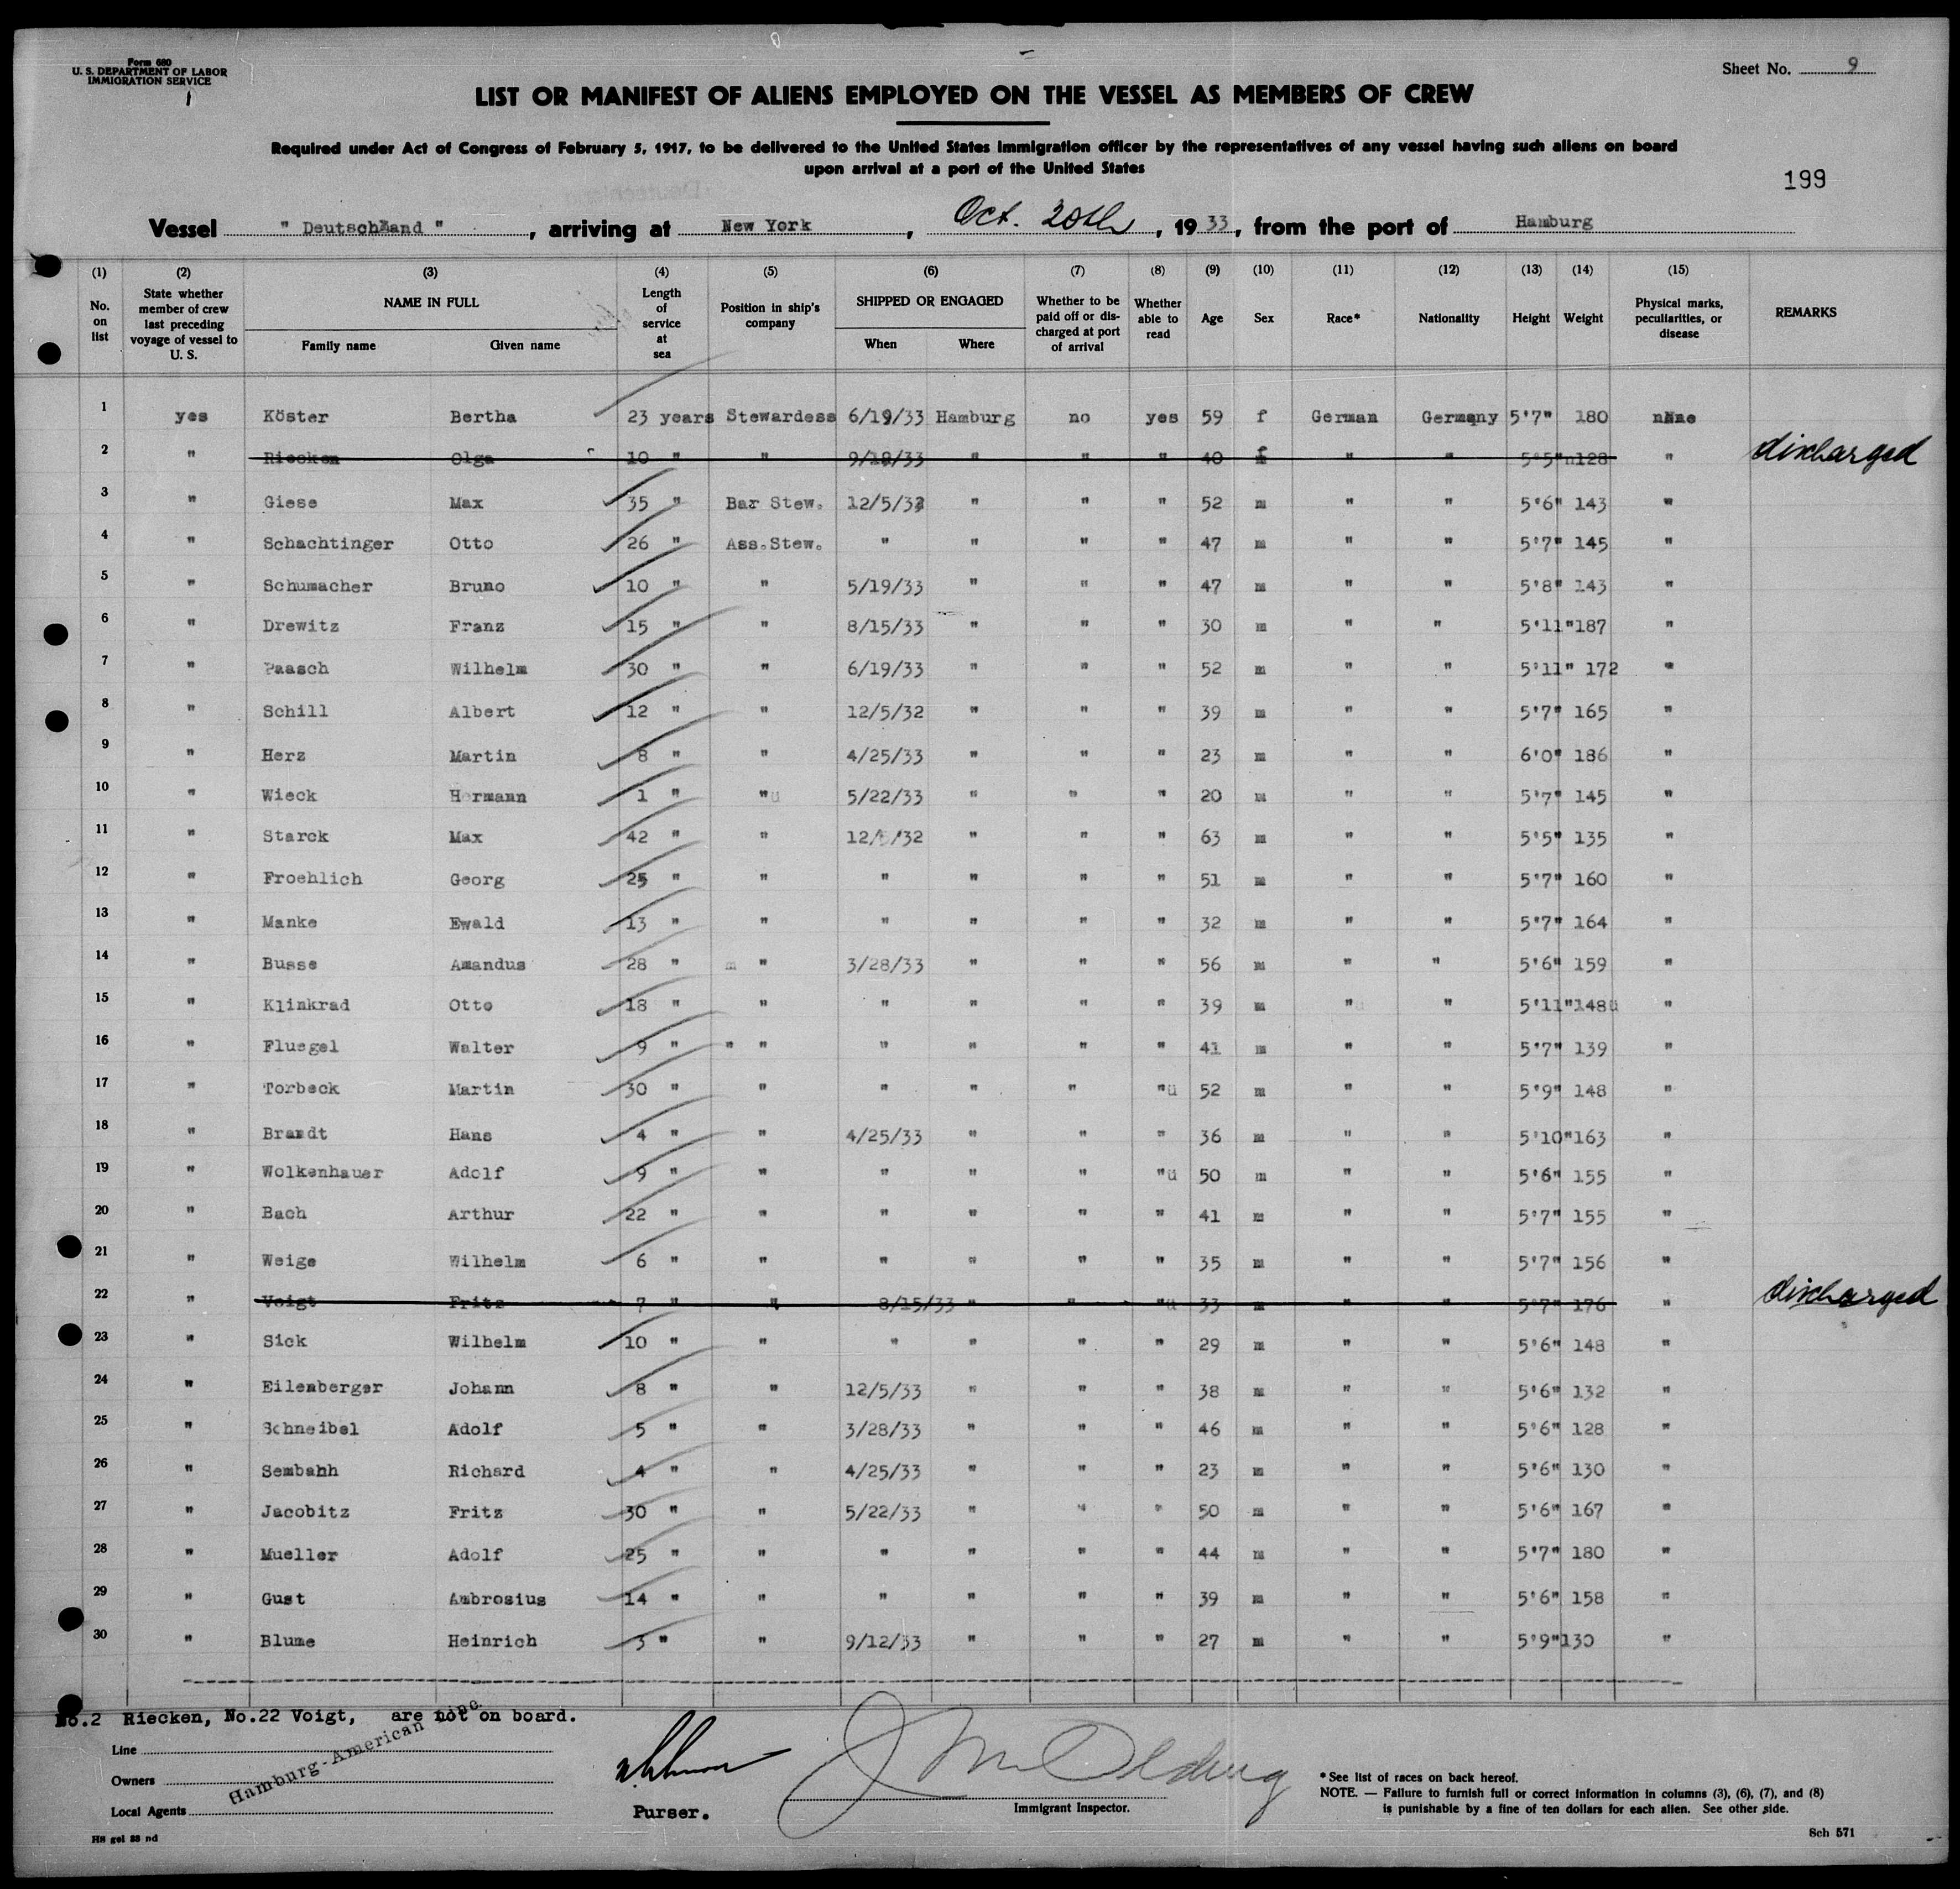 Form 680
U. S. DEPARTMENT OF LABOR
IMMIGRATION SERVICE
Sheet No. 9
LIST OR MANIFEST OF ALIENS EMPLOYED ON THE VESSEL AS MEMBERS OF CREW
Required under Act of Congress of February 5, 1917, to be delivered to the United States immigration officer by the representatives of any vessel having such aliens on board
upon arrival at a port of the United States
199
Vessel " Deutschland ", arriving at New York, Oct. 20th, 1933, from the port of Hamburg
(1) (2) (3) (4) (5) (6) (7) (8) (9) (10) (11) (12) (13) (14) (15)
No. on list | State whether member of crew last preceding voyage of vessel to U. S. | NAME IN FULL Family name Given name | Length of service at sea | Position in ship's company | SHIPPED OR ENGAGED When Where | Whether to be paid off or discharged at port of arrival | Whether able to read | Age | Sex | Race* | Nationality | Height | Weight | Physical marks, peculiarities, or disease | REMARKS
1 yes Köster Bertha 23 years Stewardess 6/19/33 Hamburg no yes 59 f German Germany 5'7" 180 none
2 " Riecken Olga 10 " " 9/18/33 " " " 40 f " " 5'5" 128 " discharged
3 " Giese Max 35 " Bar Stew. 12/5/32 " " " 52 m " " 5'6" 143 "
4 " Schachtinger Otto 26 " Ass.Stew. " " " " 47 m " " 5'7" 145 "
5 " Schumacher Bruno 10 " " 5/19/33 " " " 47 m " " 5'8" 143 "
6 " Drewitz Franz 15 " " 8/15/33 " " " 30 m " " 5'11" 187 "
7 " Paasch Wilhelm 30 " " 6/19/33 " " " 52 m " " 5'11" 172 "
8 " Schill Albert 12 " " 12/5/32 " " " 39 m " " 5'7" 165 "
9 " Herz Martin 8 " " 4/25/33 " " " 23 m " " 6'0" 186 "
10 " Wieck Hermann 1 " " 5/22/33 " " " 20 m " " 5'7" 145 "
11 " Starck Max 42 " " 12/5/32 " " " 63 m " " 5'5" 135 "
12 " Froehlich Georg 25 " " " " " " 51 m " " 5'7" 160 "
13 " Manke Ewald 13 " " " " " " 32 m " " 5'7" 164 "
14 " Busse Amandus 28 " " 3/28/33 " " " 56 m " " 5'6" 159 "
15 " Klinkrad Otto 18 " " " " " " 39 m " " 5'11" 148 "
16 " Fluegel Walter 9 " " " " " " " 41 m " " 5'7" 139 "
17 " Torbeck Martin 30 " " " " " " 52 m " " 5'9" 148 "
18 " Brandt Hans 4 " " 4/25/33 " " " 36 m " " 5'10" 163 "
19 " Wolkenhauer Adolf 9 " " " " " " 50 m " " 5'6" 155 "
20 " Bach Arthur 22 " " " " " " 41 m " " 5'7" 155 "
21 " Weige Wilhelm 6 " " " " " " 35 m " " 5'7" 156 "
22 " Voigt Fritz 7 " " 8/15/33 " " " 33 m " " 5'7" 176 " discharged
23 " Sick Wilhelm 10 " " " " " " 29 m " " 5'6" 148 "
24 " Eilenberger Johann 8 " " 12/5/33 " " " 38 m " " 5'6" 132 "
25 " Schneibel Adolf 5 " " 3/28/33 " " " 46 m " " 5'6" 128 "
26 " Sembahh Richard 4 " " 4/25/33 " " " 23 m " " 5'6" 130 "
27 " Jacobitz Fritz 30 " " 5/22/33 " " " 50 m " " 5'6" 167 "
28 " Mueller Adolf 25 " " " " " " 44 m " " 5'7" 180 "
29 " Gust Ambrosius 14 " " " " " " 39 m " " 5'6" 158 "
30 " Blume Heinrich 3 " " 9/12/33 " " " 27 m " " 5'9" 130 "
No.2 Riecken, No.22 Voigt, are not on board.
Line
Owners
Local Agents
Hamburg-American Line
Purser.
Immigrant Inspector.
* See list of races on back hereof.
NOTE. — Failure to furnish full or correct information in columns (3), (6), (7), and (8)
is punishable by a fine of ten dollars for each alien. See other side.
H8 gel 88 nd
Sch 571